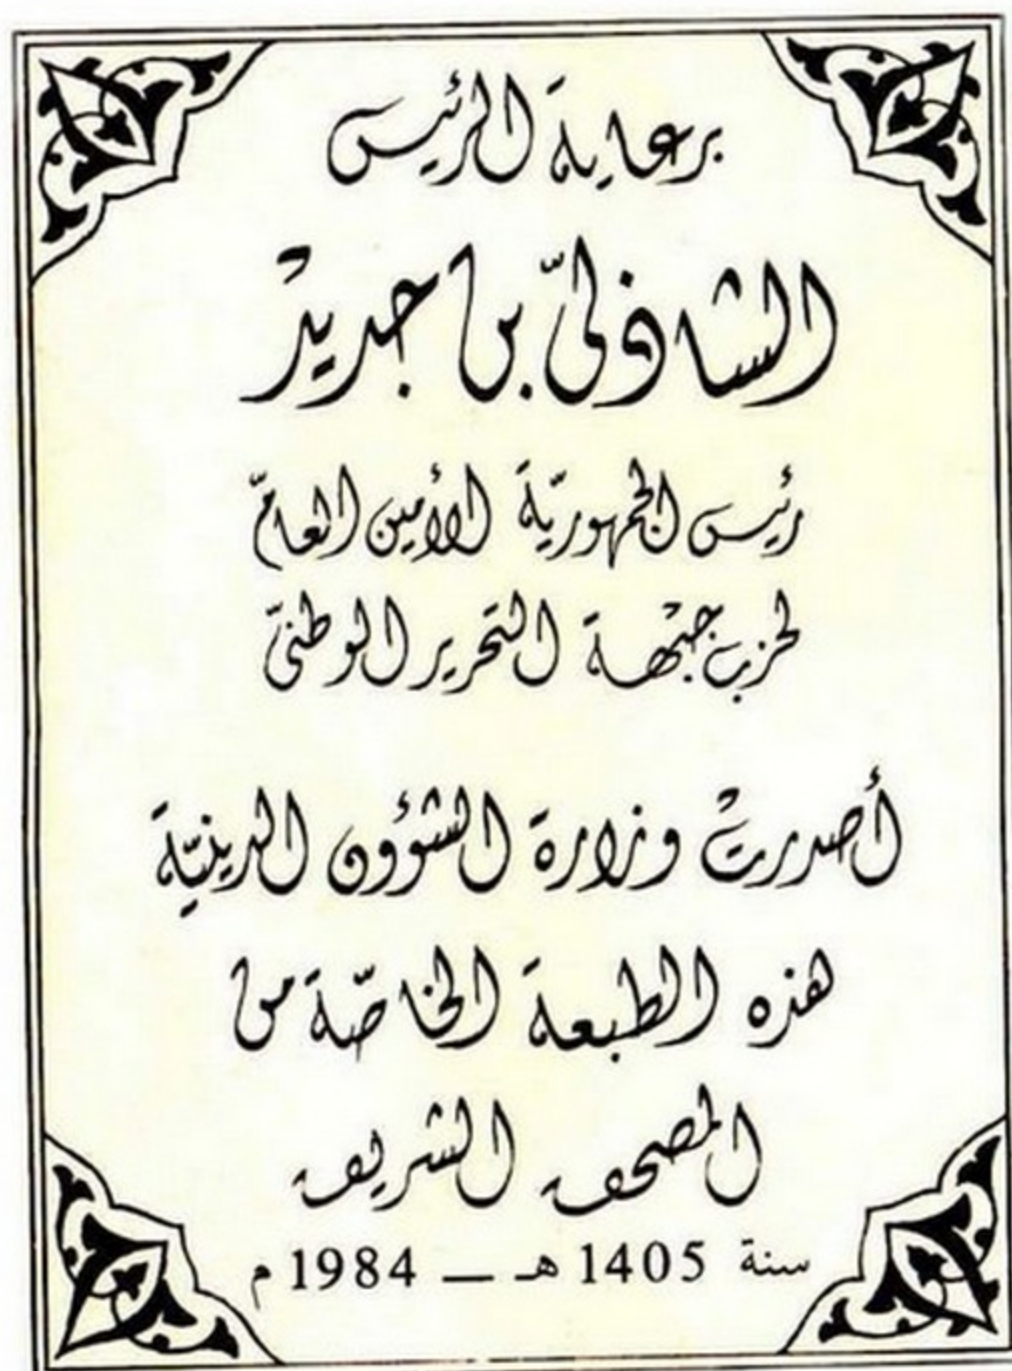 برعاية الرئيس
الشاذلي بن جديد
رئيس الجمهورية الأمين العامّ
لحزب جبْهة التحرير الوطنيّ
أصدرتْ وزارة الشؤون الدينيّة
هذه الطبعة الخاصّة من
المصحف الشريف
سنة 1405 هـ — 1984 م